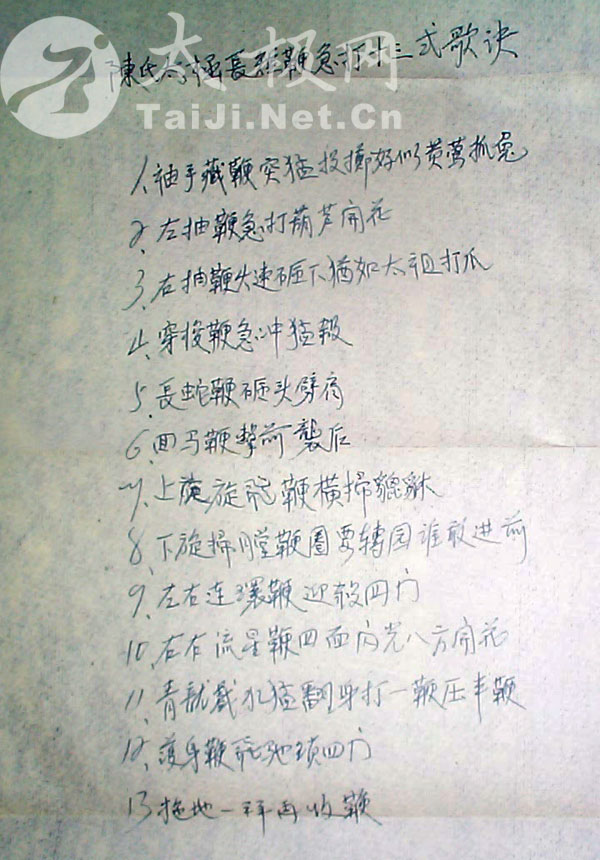 太极网
TaiJi.Net.Cn
陳氏太极長短鞭急打十三式歌诀
1、袖手藏鞭突猛投掷好似黄莺抓兔
2、左抽鞭急打葫芦開花
3、右抽鞭火速砸下犹如太祖打爪
4、穿梭鞭急冲猛報
5、長蛇鞭砸头劈肩
6、回马鞭擊前襲后
7、上旋飛鞭横掃貔貅
8、下旋掃膛鞭圈要转园谁敢进前
9、左右连環鞭迎殺四门
10、左右流星鞭四面闪光八方開花
11、青龍戲水猛翻身打一鞭压丰鞭
12、護身鞭飛驰鎖四门
13 拖地一拜再收鞭